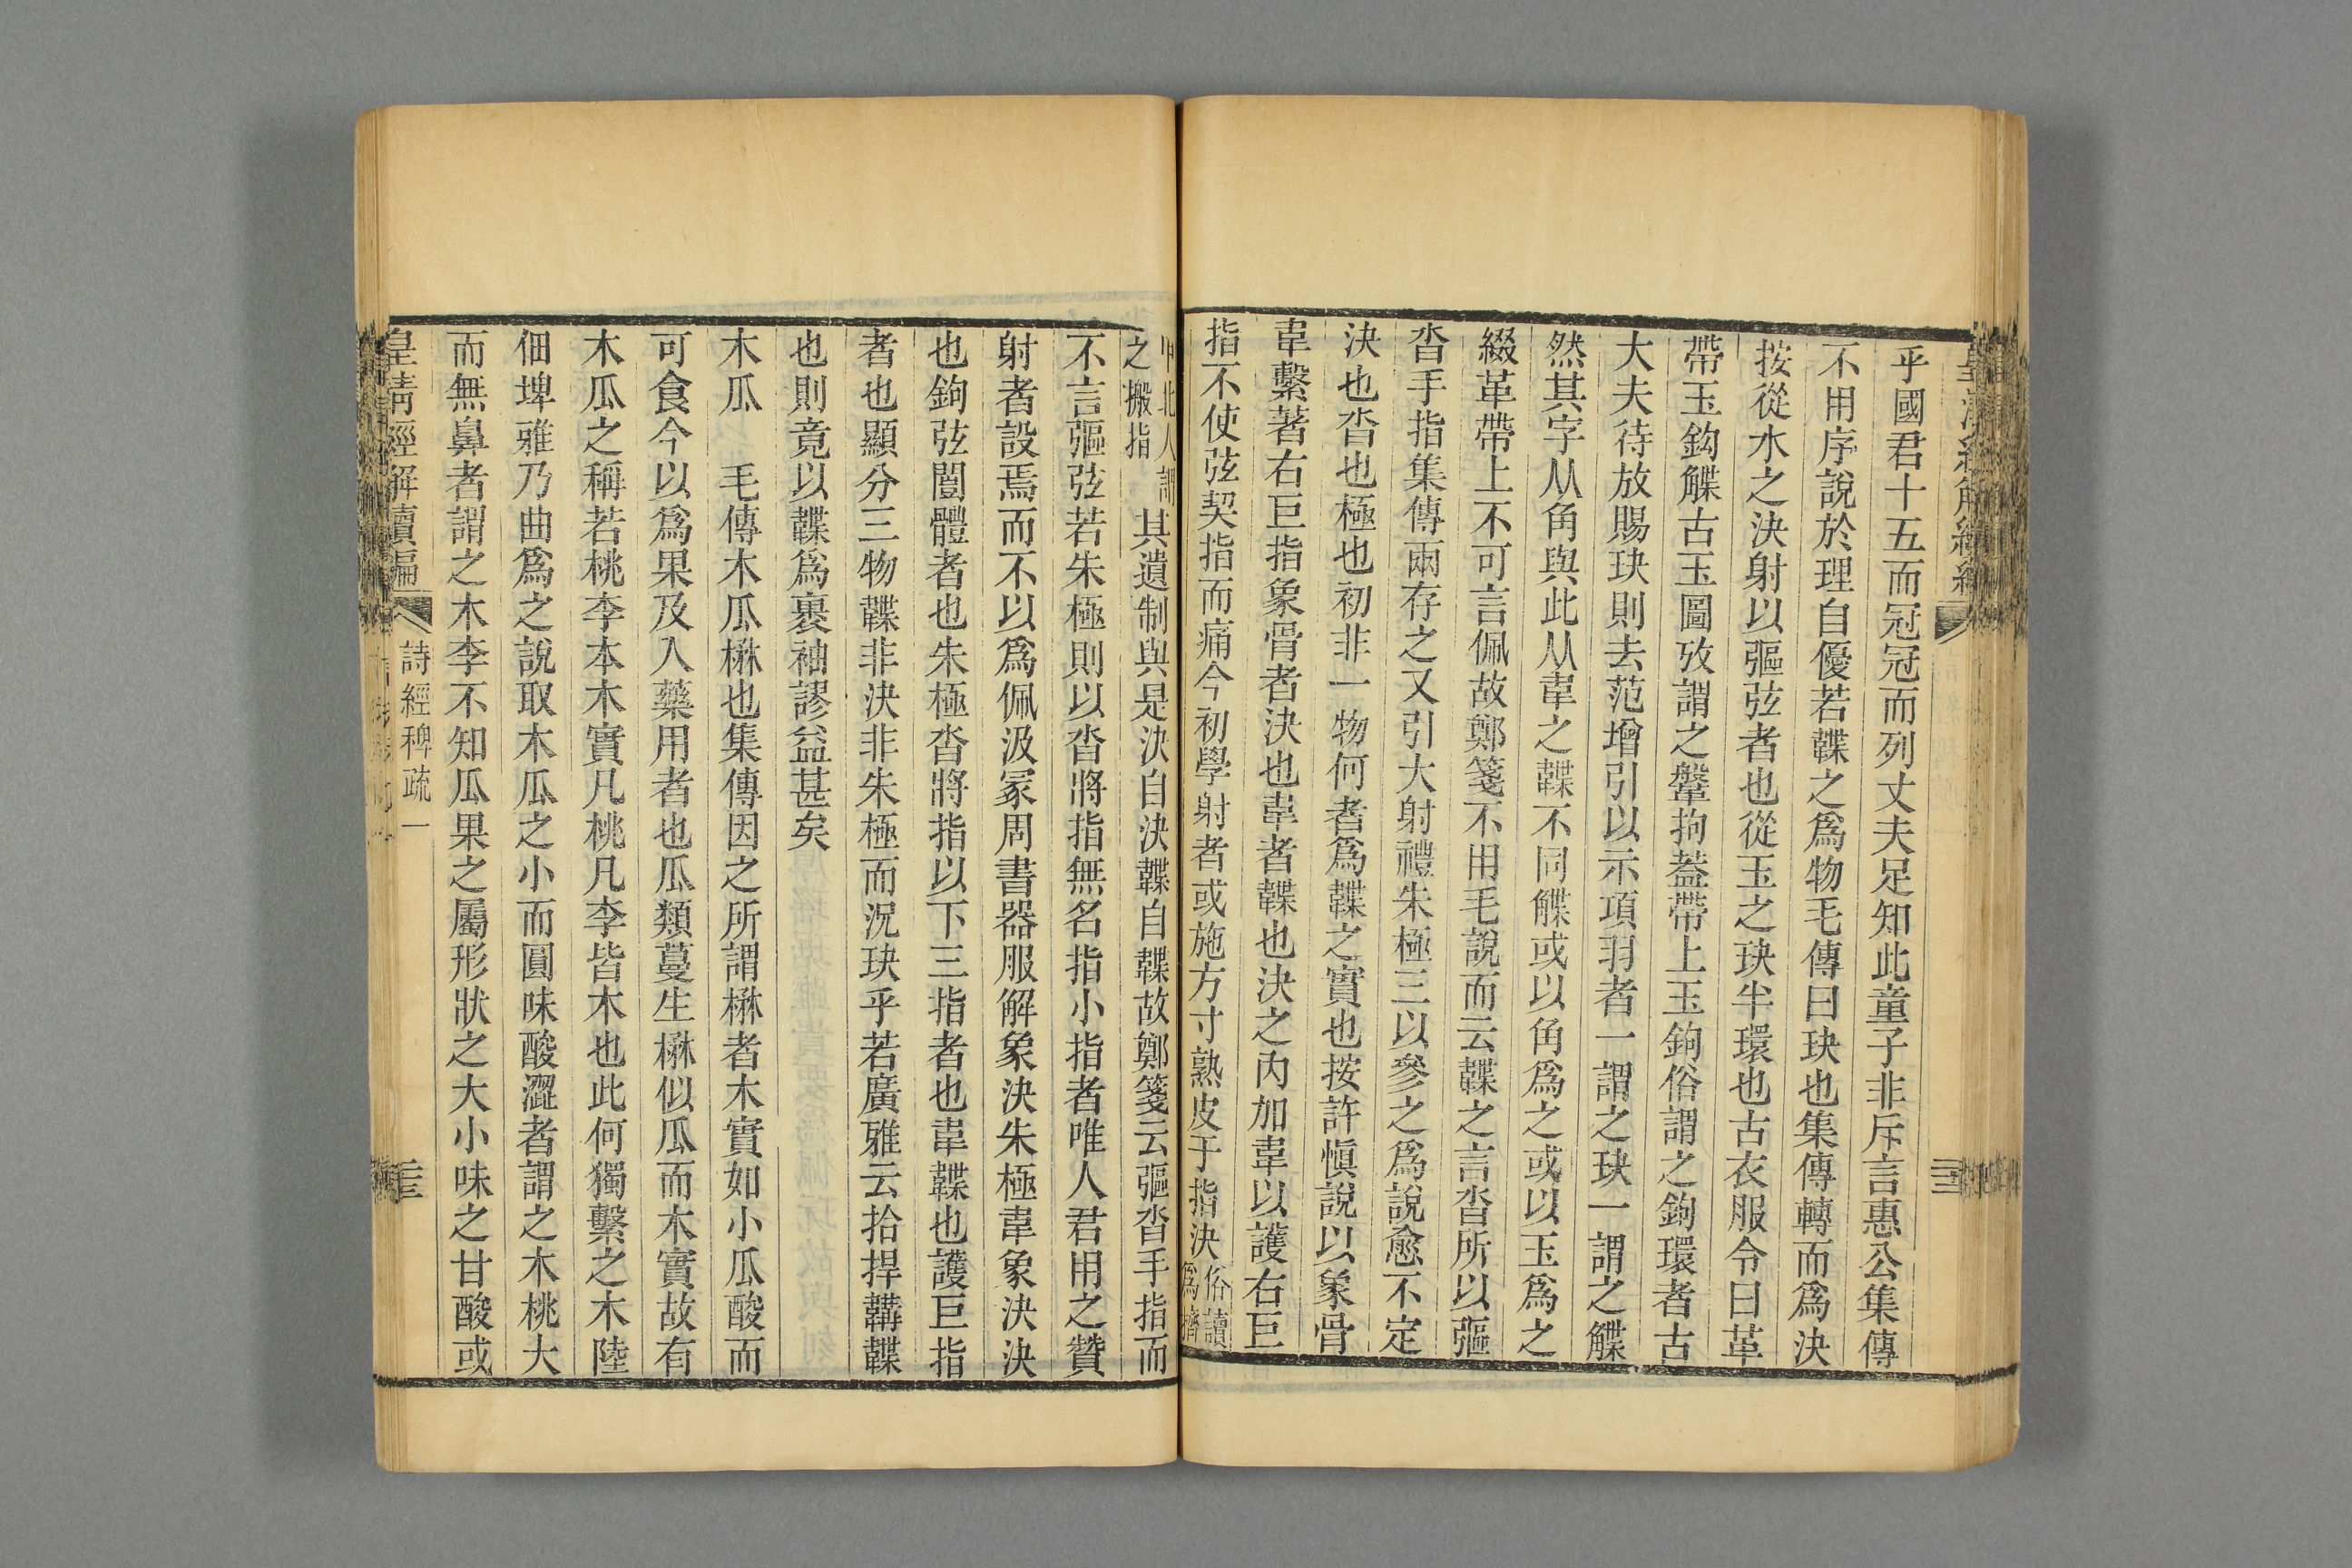 乎國君十五而冠冠而列丈夫足知此童子非斥言惠公集傳
不用序說於理自優若韘之爲物毛傳曰玦也集傳轉而爲決
按從水之決射以彄弦者也從玉之玦半環也古衣服令曰革
帶玉鉤觿古玉圖攷謂之鞶拘葢帶上玉鉤俗謂之鉤環者古
大夫待放賜玦則去范增引以示項羽者一謂之玦一謂之觿
然其字从角與此从韋之韘不同觿或以角爲之或以玉爲之
綴革帶上不可言佩故鄭箋不用毛說而云韘之言沓所以彄
沓手指集傳兩存之又引大射禮朱極三以參之爲說愈不定
決也沓也極也初非一物何者爲韘之實也按許愼說以象骨
韋繫著右巨指象骨者決也韋者韘也決之內加韋以護右巨
指不使弦契指而痛今初學射者或施方寸熟皮于指決俗讀爲濟
甲北人謂之搬指其遺制與是決自決韘自韘故鄭箋云彄沓手指而
不言彄弦若朱極則以沓將指無名指小指者唯人君用之贊
射者設焉而不以爲佩汲冢周書器服解象決朱極韋象決決
也鉤弦闓體者也朱極沓將指以下三指者也韋韘也護巨指
者也顯分三物韘非決非朱極而況玦乎若廣雅云拾捍韝韘
也則竟以韘爲裹袖謬益甚矣
木瓜　毛傳木瓜楙也集傳因之所謂楙者木實如小瓜酸而
可食今以爲果及入藥用者也瓜類蔓生楙似瓜而木實故有
木瓜之稱若桃李本木實凡桃凡李皆木也此何獨繫之木陸
佃埤雅乃曲爲之說取木瓜之小而圓味酸澀者謂之木桃大
而無鼻者謂之木李不知瓜果之屬形狀之大小味之甘酸或
皇清經解續編　詩經稗疏一　三